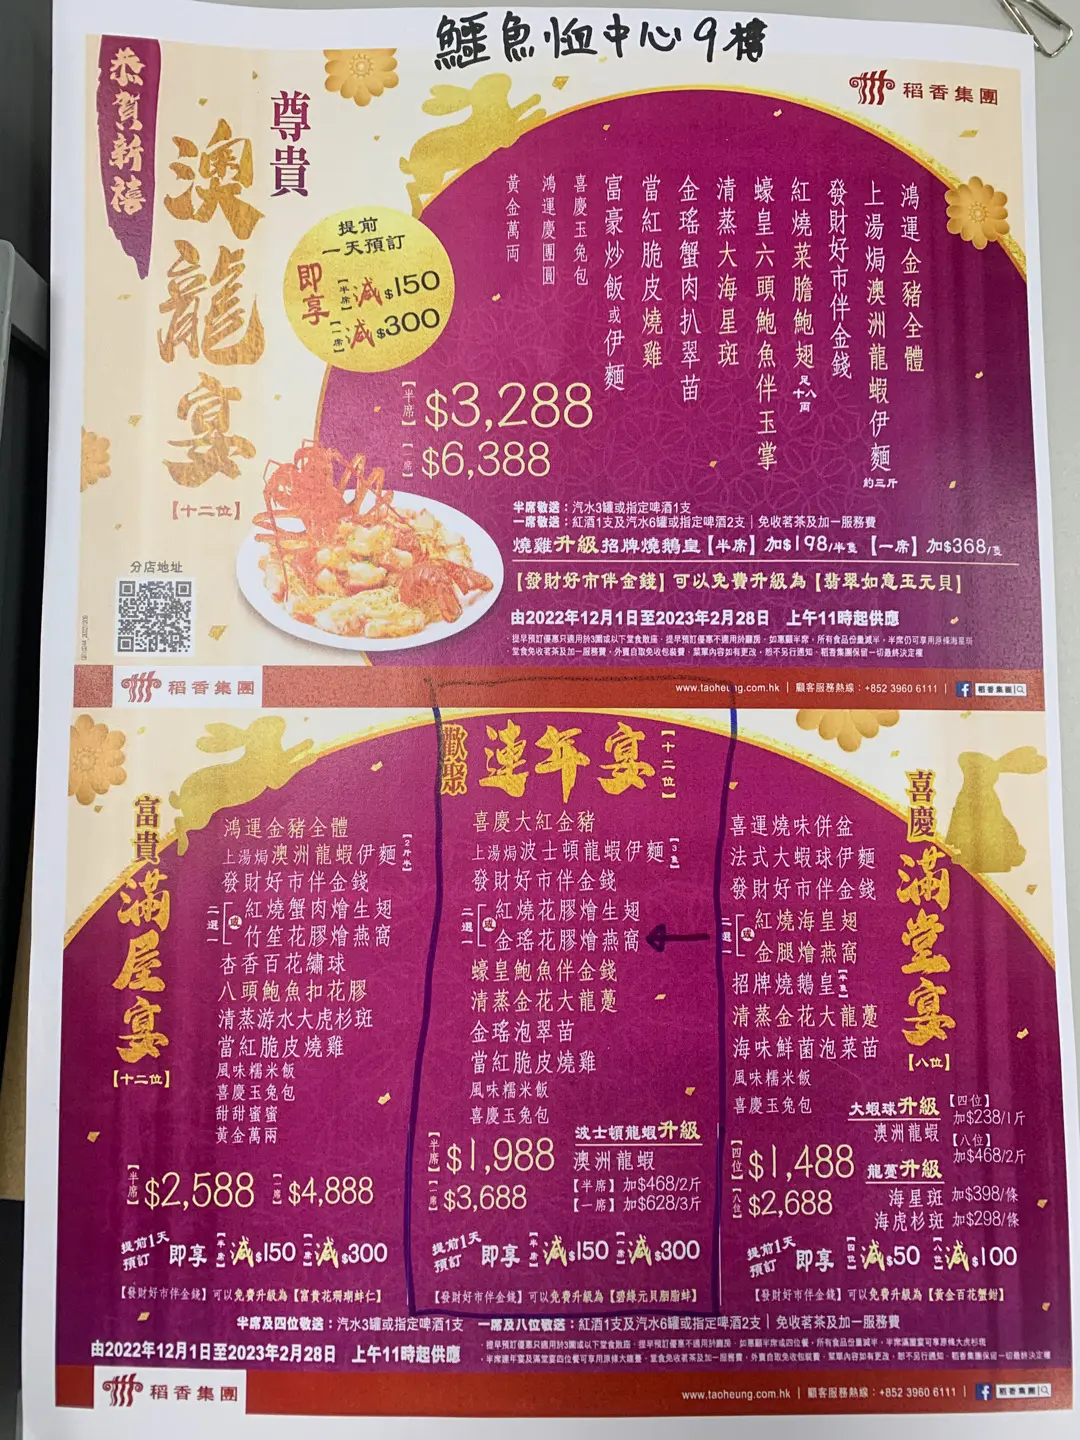 鱷魚恤中心9樓
恭賀新禧
尊貴
澳龍宴
【十二位】
稻香集團
提前
一天預訂
即享
【半席】減$150
【一席】減$300
鴻運金豬全體
上湯焗澳洲龍蝦伊麵 約三斤
發財好市伴金錢
紅燒菜膽鮑翅 足十八兩
蠔皇六頭鮑魚伴玉掌
清蒸大海星斑
金瑤蟹肉扒翠苗
當紅脆皮燒雞
富豪炒飯或伊麵
喜慶玉兔包
鴻運慶團圓
黃金萬両
【半席】$3,288
【一席】$6,388
半席敬送：汽水3罐或指定啤酒1支
一席敬送：紅酒1支及汽水6罐或指定啤酒2支｜免收茗茶及加一服務費
燒雞升級招牌燒鵝皇【半席】加$198/半隻 【一席】加$368/隻
【發財好市伴金錢】可以免費升級為【翡翠如意玉元貝】
由2022年12月1日至2023年2月28日 上午11時起供應
分店地址
稻香集團
www.taoheung.com.hk｜顧客服務熱線：+852 3960 6111｜稻香集團
富貴
滿屋宴
【十二位】
鴻運金豬全體
上湯焗澳洲龍蝦伊麵【2斤半】
發財好市伴金錢
二選一
或
紅燒蟹肉燴生翅
竹笙花膠燴燕窩
杏香百花鏽球
八頭鮑魚扣花膠
清蒸游水大虎杉斑
當紅脆皮燒雞
風味糯米飯
喜慶玉兔包
甜甜蜜蜜
黃金萬兩
【半席】$2,588 【一席】$4,888
提前1天預訂 即享 【半席】減$150 【一席】減$300
【發財好市伴金錢】可以免費升級為【富貴花珊瑚蚌仁】
歡聚
連年宴
【十二位】
喜慶大紅金豬
上湯焗波士頓龍蝦伊麵【3隻】
發財好市伴金錢
二選一
或
紅燒花膠燴生翅
金瑤花膠燴燕窩
蠔皇鮑魚伴金錢
清蒸金花大龍躉
金瑤泡翠苗
當紅脆皮燒雞
風味糯米飯
喜慶玉兔包
【半席】$1,988
【一席】$3,688
波士頓龍蝦升級
澳洲龍蝦
【半席】加$468/2斤
【一席】加$628/3斤
提前1天預訂 即享 【半席】減$150 【一席】減$300
【發財好市伴金錢】可以免費升級為【碧綠元貝胭脂蚌】
喜慶
滿堂宴
【八位】
喜運燒味併盆
法式大蝦球伊麵
發財好市伴金錢
二選一
或
紅燒海皇翅
金腿燴燕窩
招牌燒鵝皇【半隻】
清蒸金花大龍躉
海味鮮菌泡菜苗
風味糯米飯
喜慶玉兔包
【四位】$1,488
【八位】$2,688
大蝦球升級
澳洲龍蝦
【四位】加$238/1斤
【八位】加$468/2斤
龍躉升級
海星斑 加$398/條
海虎杉斑 加$298/條
提前1天預訂 即享 【四位】減$50 【八位】減$100
【發財好市伴金錢】可以免費升級為【黃金百花蟹鉗】
半席及四位敬送：汽水3罐或指定啤酒1支 一席及八位敬送：紅酒1支及汽水6罐或指定啤酒2支｜免收茗茶及加一服務費
由2022年12月1日至2023年2月28日 上午11時起供應
稻香集團
www.taoheung.com.hk｜顧客服務熱線：+852 3960 6111｜稻香集團